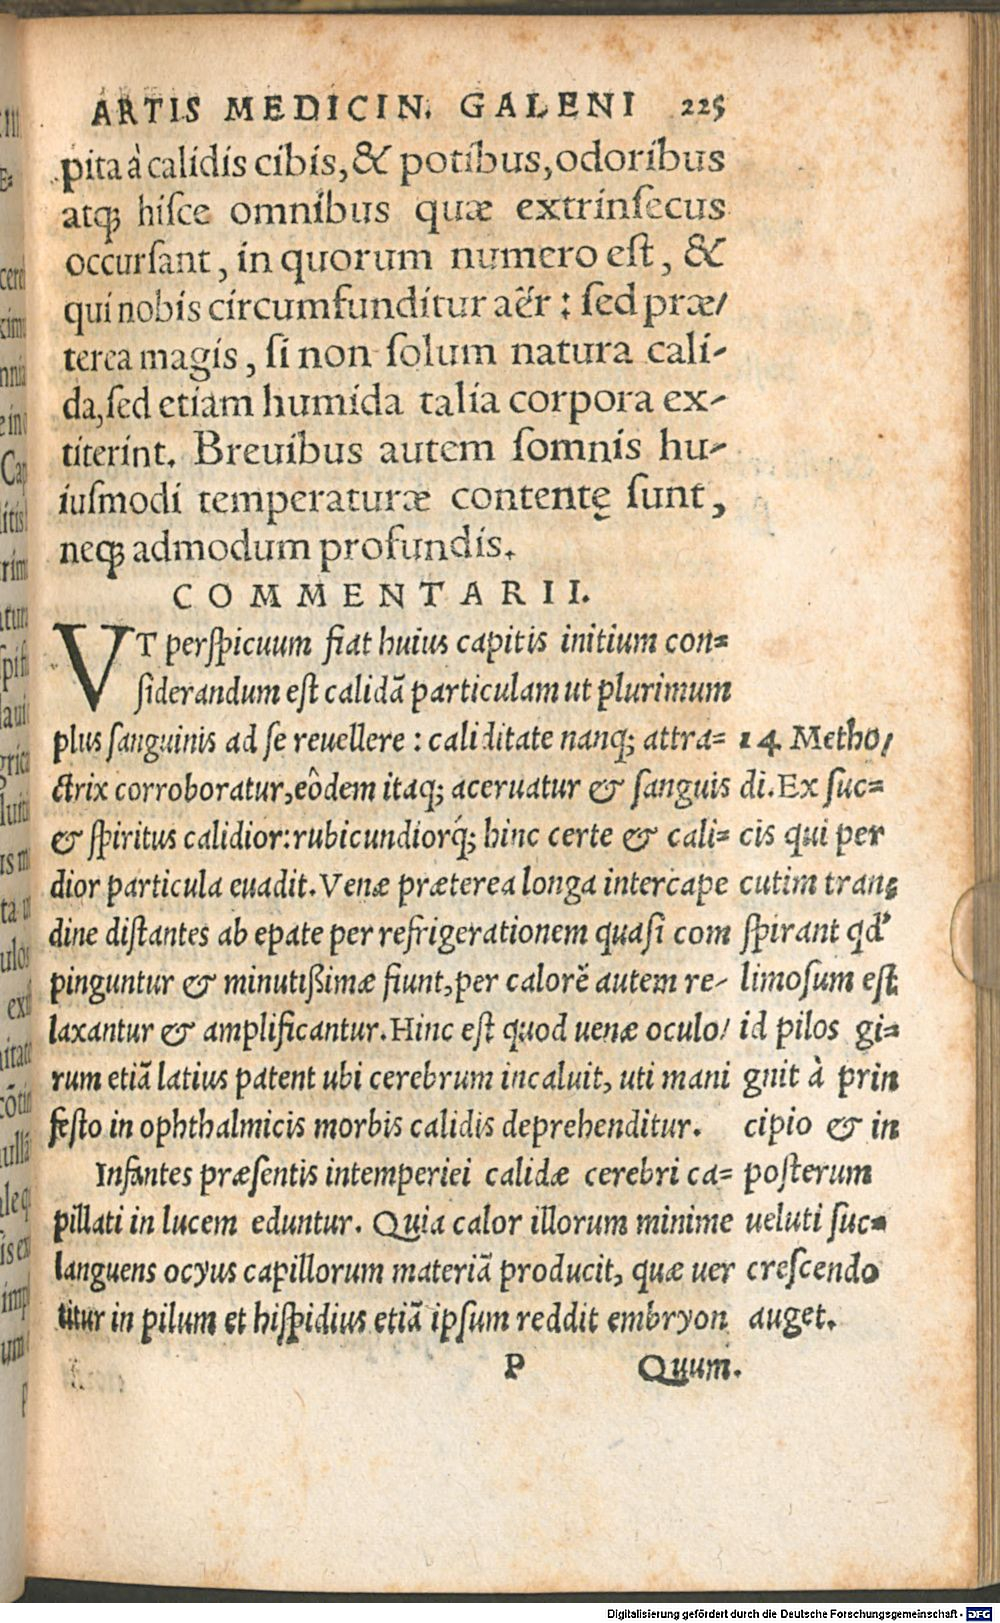 ARTIS MEDICIN. GALENI 225
pita à calidis cibis, & potibus, odoribus
atq; hisce omnibus quæ extrinsecus
occursant, in quorum numero est, &
qui nobis circumfunditur aër: sed præ/
terea magis, si non solum natura cali-
da, sed etiam humida talia corpora ex-
titerint. Breuibus autem somnis hu-
iusmodi temperaturæ contentę sunt,
neq; admodum profundis.
COMMENTARII.
VT perspicuum fiat huius capitis initium con=
siderandum est calidā particulam ut plurimum
plus sanguinis ad se reuellere: caliditate nanq; attra=
ctrix corroboratur, eôdem itaq; aceruatur & sanguis
& spiritus calidior: rubicundiorq́; hinc certe & cali=
dior particula euadit. Venæ præterea longa intercape
dine distantes ab epate per refrigerationem quasi com
pinguntur & minutißimæ fiunt, per calorē autem re-
laxantur & amplificantur. Hinc est quod uenæ oculo/
rum etiā latius patent ubi cerebrum incaluit, uti mani
festo in ophthalmicis morbis calidis deprehenditur.
Infantes præsentis intemperiei calidæ cerebri ca=
pillati in lucem eduntur. Quia calor illorum minime
languens ocyus capillorum materiā producit, quæ uer
titur in pilum et hispidius etiā ipsum reddit embryon
14. Metho/
di. Ex suc=
cis qui per
cutim trans
spirant qd'
limosum est
id pilos gi=
gnit à prin
cipio & in
posterum
ueluti suc=
crescendo
auget.
P Quum.
Digitalisierung gefördert durch die Deutsche Forschungsgemeinschaft - DFG